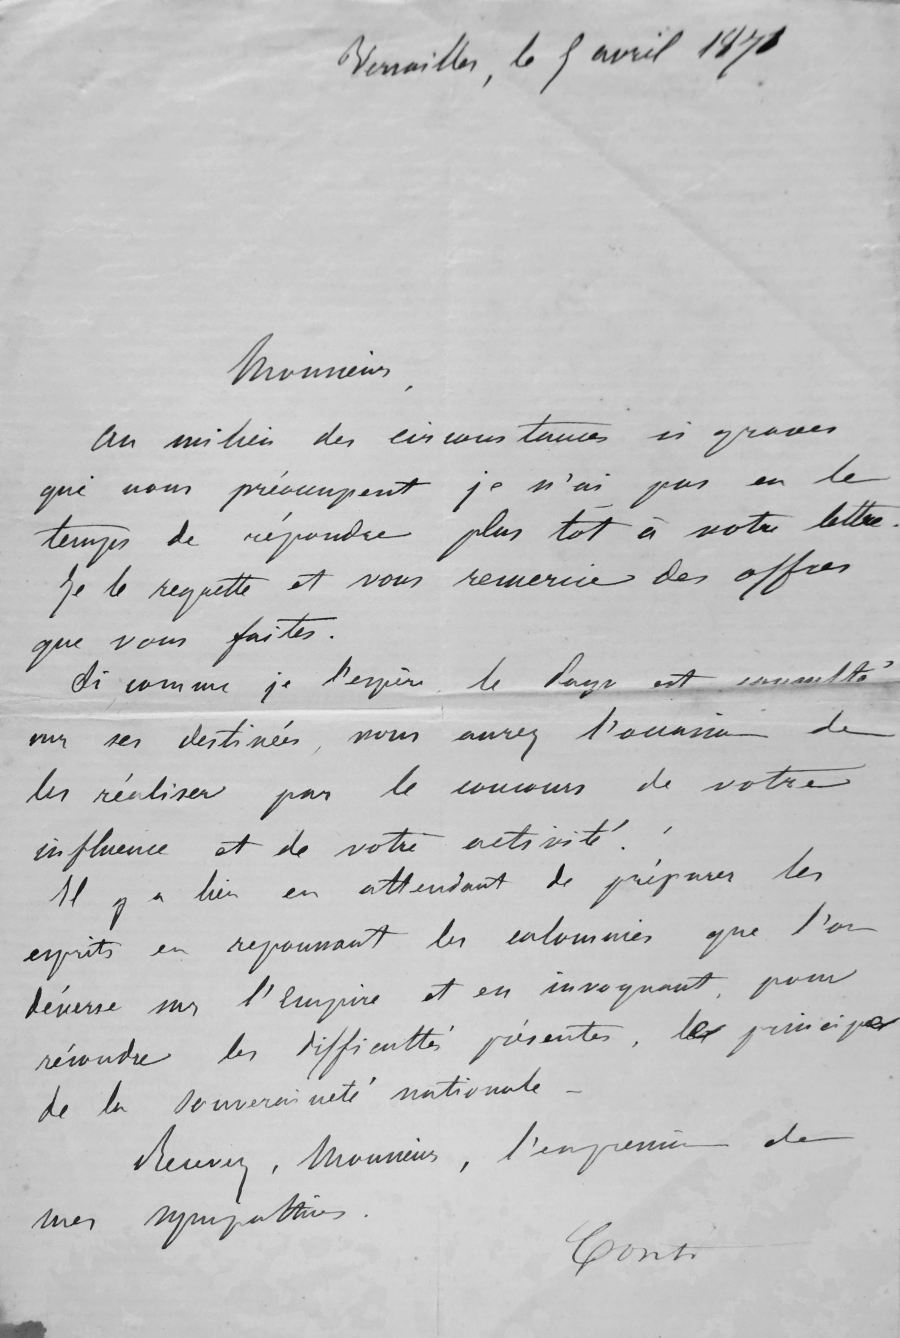 Versailles, le 5 avril 1871
Monsieur,
Au milieu des circonstances si graves
qui nous préoccupent je n'ai pas eu le
temps de répondre plus tôt à votre lettre.
Je le regrette et vous remercie des offres
que vous faites.
Si, comme je l'espère, le Pays est consulté
sur ses destinées, vous aurez l'occasion de
les réaliser par le concours de votre
influence et de votre activité.
Il y a lieu en attendant de préparer les
esprits en repoussant les calomnies que l'on
déverse sur l'Empire et en invoquant, pour
résoudre les difficultés présentes, le principe
de la souveraineté nationale –
Recevez, Monsieur, l'expression de
mes sympathies.
Conti